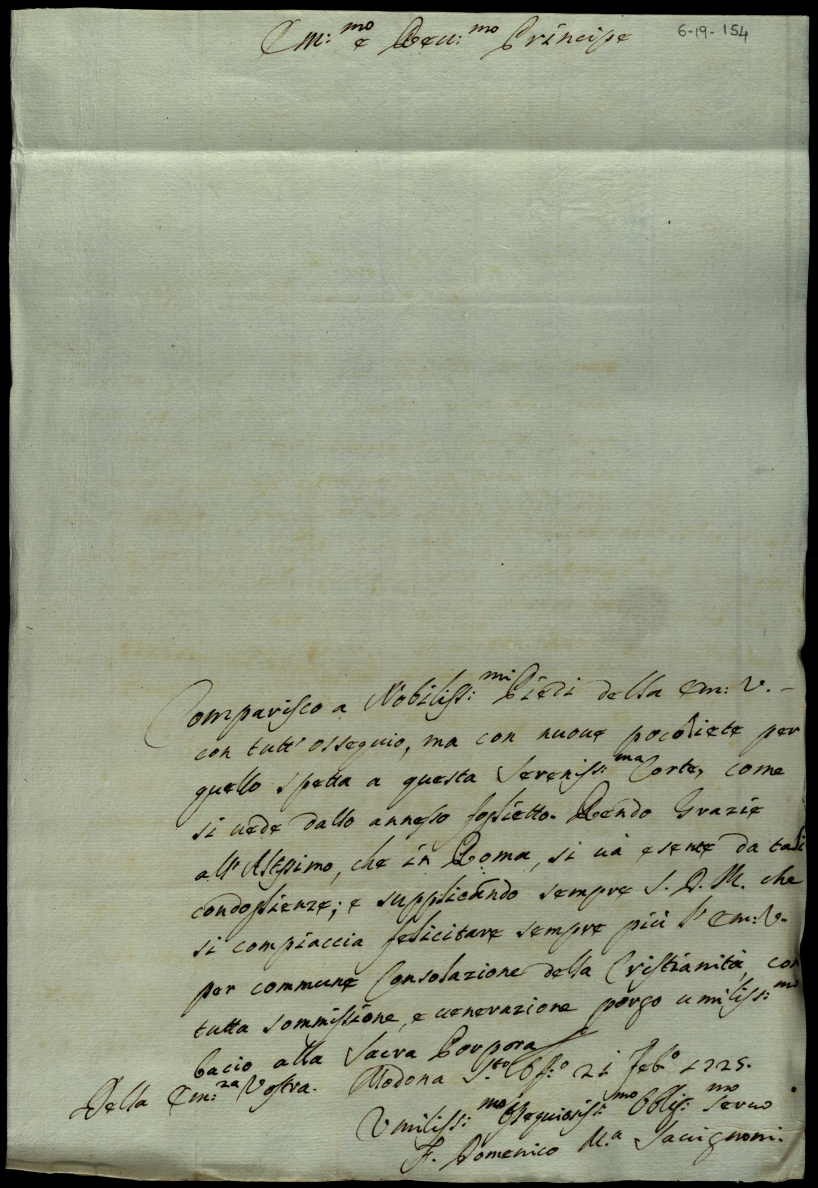 Em:mo e Reu:mo Principe
6-19-154
Comparisco a Nobiliss:mi Piedi della Em: V. -
con tutt' ossequio, ma con nuoue poco liete per
quello spetta a questa Sereniss:ma Corte, come
si uede dallo annesso foglietto. Rendo Grazie
all' Altissimo, che in Roma, si uà esente da tali
condoglienze; e supplicando sempre S. D. M. che
si compiaccia felicitare sempre più l' Em: V.
per commune Consolazione della Cristianità, con
tutta sommissione, e uenerazione porgo umiliss:mo
bacio alla Sacra Porpora
Della Em:za Vostra. Modona S.to Off.o 21 Feb.o 1725.
Vmiliss:mo Ossequiosiss:mo Oblig:mo Seruo
F. Domenico M.a Sauignoni.